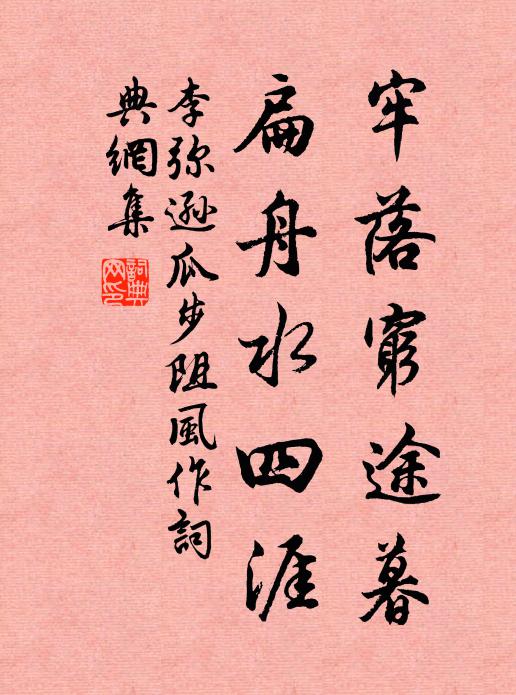 牢落窮途暮
扁舟水四涯
李弥遜瓜步阻風作詞
典網集
詞典
网印